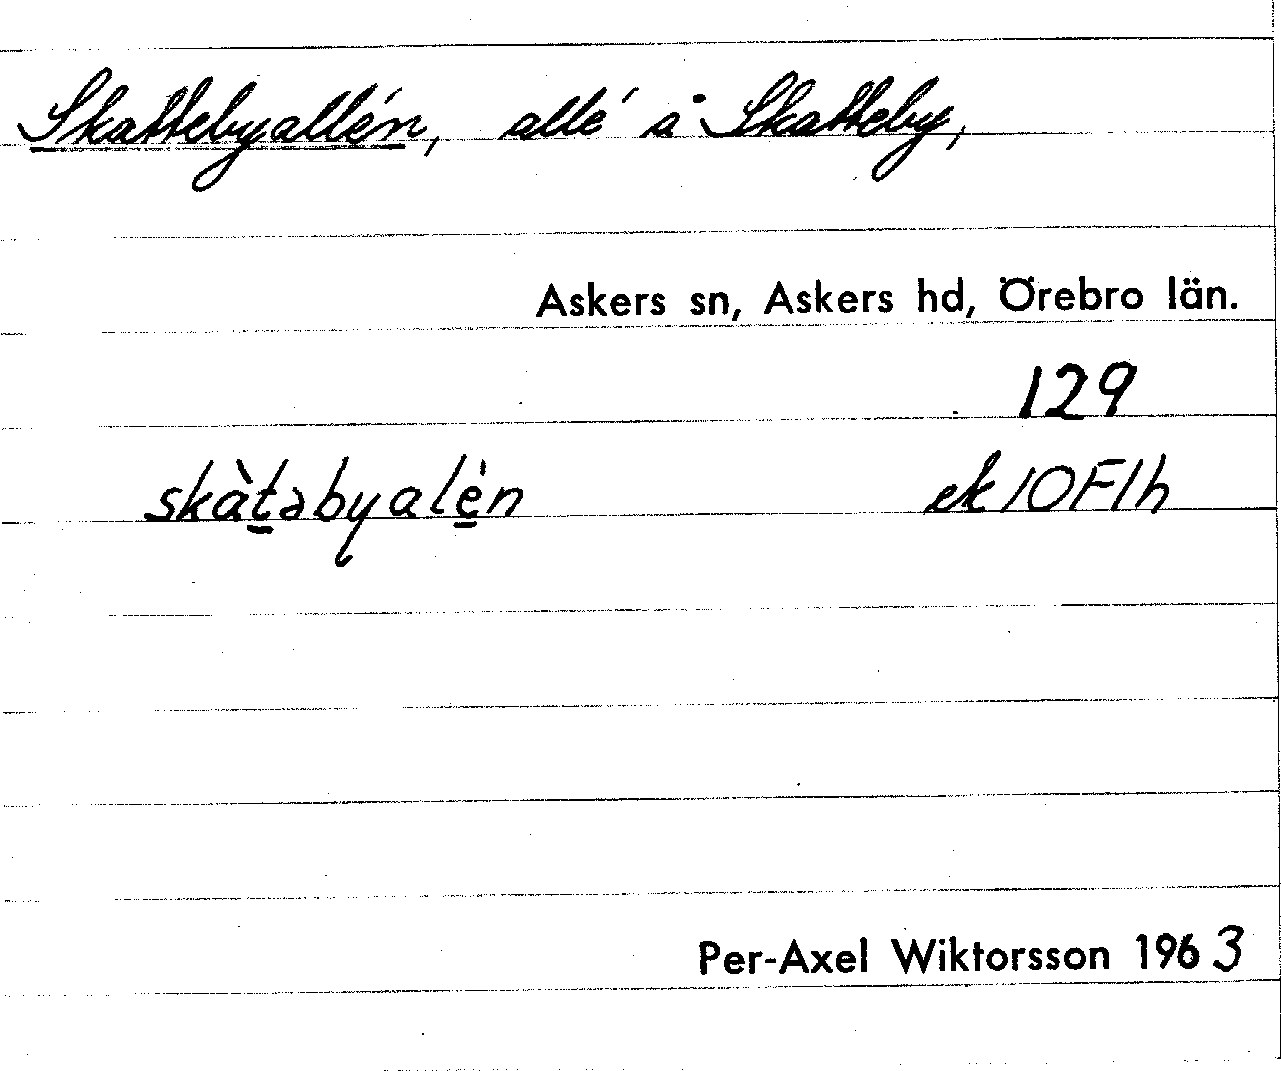 Skattebyallén, allé å Skatteby,
Askers sn, Askers hd, Örebro län.
129
skàt̲əbyalè̲n ek 10F1h
Per-Axel Wiktorsson 1963